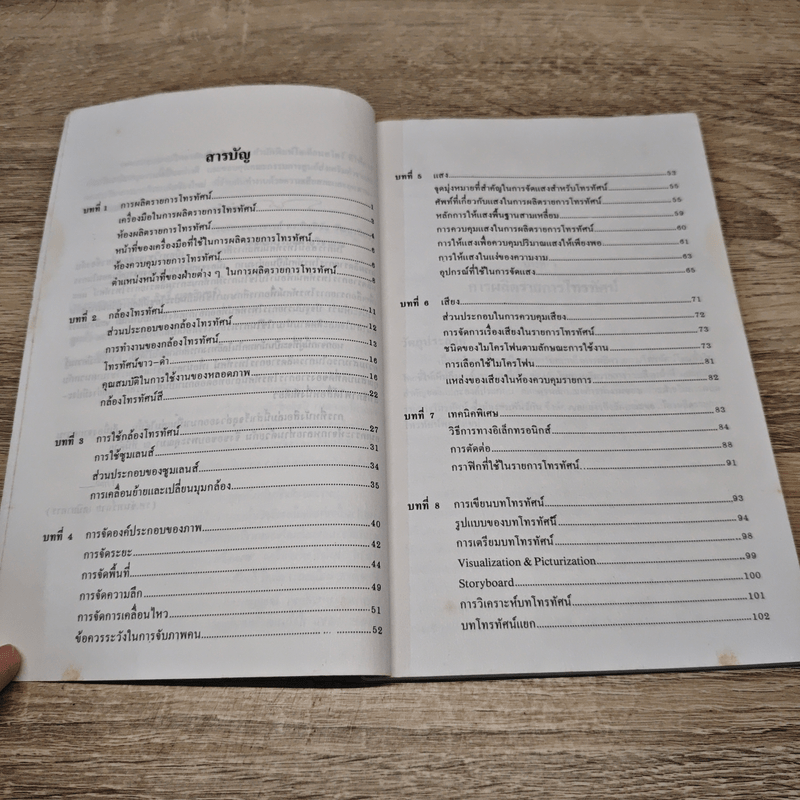 สารบัญ
บทที่ 1 การผลิตรายการโทรทัศน์ 1
เครื่องมือในการผลิตรายการโทรทัศน์ 3
ห้องผลิตรายการโทรทัศน์ 4
หน้าที่ของเครื่องมือที่ใช้ในการผลิตรายการโทรทัศน์ 6
ห้องควบคุมรายการโทรทัศน์
ตำแหน่งหน้าที่ของฝ่ายต่าง ๆ ในการผลิตรายการโทรทัศน์ 8
บทที่ 2 กล้องโทรทัศน์ 11
ส่วนประกอบของกล้องโทรทัศน์ 12
การทำงานของกล้องโทรทัศน์ 13
โทรทัศน์ขาว-ดำ 16
คุณสมบัติในการใช้งานของหลอดภาพ 16
กล้องโทรทัศน์สี
บทที่ 3 การใช้กล้องโทรทัศน์ 27
การใช้ซูมเลนส์ 31
ส่วนประกอบของซูมเลนส์ 34
การเคลื่อนย้ายและเปลี่ยนมุมกล้อง 35
บทที่ 4 การจัดองค์ประกอบของภาพ 40
การจัดระยะ 42
การจัดพื้นที่ 44
การจัดความลึก 49
การจัดการเคลื่อนไหว 51
ข้อควรระวังในการจับภาพคน 52
บทที่ 5 แสง 53
จุดมุ่งหมายที่สำคัญในการจัดแสงสำหรับโทรทัศน์ 55
ศัพท์ที่เกี่ยวกับแสงในการผลิตรายการโทรทัศน์ 56
หลักการให้แสงพื้นฐานสามเหลี่ยม 59
การควบคุมแสงในการผลิตรายการโทรทัศน์ 60
การให้แสงเพื่อควบคุมปริมาณแสงให้เพียงพอ 61
การให้แสงในแง่ของความงาม 63
อุปกรณ์ที่ใช้ในการจัดแสง 65
บทที่ 6 เสียง 71
ส่วนประกอบในการควบคุมเสียง 72
การจัดการเรื่องเสียงในรายการโทรทัศน์ 73
ชนิดของไมโครโฟนตามลักษณะการใช้งาน 73
การเลือกใช้ไมโครโฟน 81
แหล่งของเสียงในห้องควบคุมรายการ 82
บทที่ 7 เทคนิคพิเศษ 83
วิธีการทางอิเล็กทรอนิกส์ 84
การตัดต่อ 88
กราฟิกที่ใช้ในรายการโทรทัศน์ 91
บทที่ 8 การเขียนบทโทรทัศน์ 93
รูปแบบของบทโทรทัศน์ 94
การเตรียมบทโทรทัศน์ 98
Visualization & Picturization 99
Storyboard 100
การวิเคราะห์บทโทรทัศน์ 101
บทโทรทัศน์แยก 102